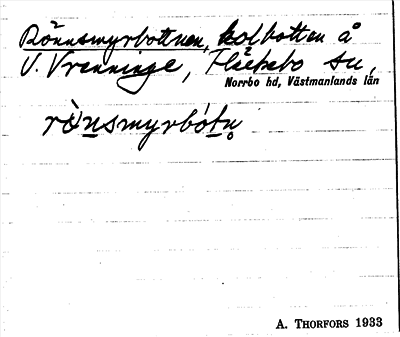 Rönnsmyrbottnen, kolbotten å
V. Vrenninge, Fläckebo sn,
Norrbo hd, Västmanlands län
rònsmyrbótn̥
A. THORFORS 1933